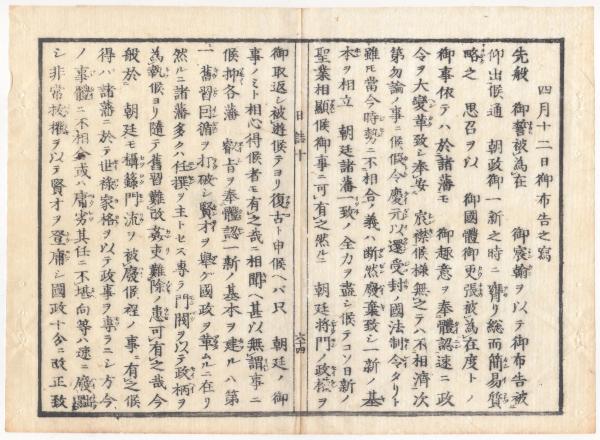 四月十二日御布告之寫
先般　御誓被為在　御宸翰ヲ以テ御布告被
仰出候通　朝政御一新之時ニ膺リ総而簡易質
略之　思召ヲ以　御國體御更張被為在度トノ
御事依テハ於諸藩モ　御趣意ヲ奉體認速ニ政
令ヲ大變革致シ奉安　宸襟候様無之テハ不相濟次
第勿論ノ事ニ候假令慶元以還受封ノ國法制令タリト
雖モ當今時勢ニ不相合ノ義ハ断然廢棄致シ一新ノ基
本ヲ相立　朝廷諸藩一致ノ全力ヲ盡シ候テコソ日新ノ
聖業相顯候御事ニ可有之然ルニ　朝廷将門ノ政權ヲ
日誌十
六十四
御取返シ被遊候テヨリ復古ト申候ヘバ只　朝廷ノ御
事ノミト相心得候者モ有之哉ニ相聞ヘ甚以無謂事ニ
候抑各藩　睿旨ヲ奉體認一新ノ基本ヲ建ルハ第
一舊習因循ヲ打破シ賢才ヲ舉ゲ國政ヲ革ムルニ在リ
然ルニ諸藩多クハ任撰ヲ主トセス專ラ門閥ヲ以テ政柄ヲ
為執候ヨリ隨テ舊習難改姦吏難除ノ患可有之哉今
般於　朝廷モ攝籙門流ヲ被廢候程ノ事ニ有之候
得ハ諸藩ニ於テ世禄家格ヲ以テ政事ヲ專ラニシ方今
ノ事體ニ不相合或ハ庸劣其任ニ不堪向等ハ速ニ廢黜
シ非常拔擢ヲ以テ賢才ヲ登庸シ國政十分ニ改正致